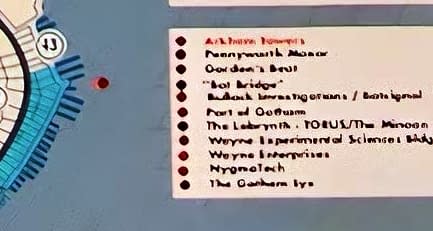 43
Arkham Towers
Pennyworth Manor
Gordon's Beat
"Bat Bridge"
Bullock Investigations / Batsignal
Port of Gotham
The Labrynth - TORUS/The Minoan
Wayne Experimental Sciences Bldg
Wayne Enterprises
NygmaTech
The Gotham Eye